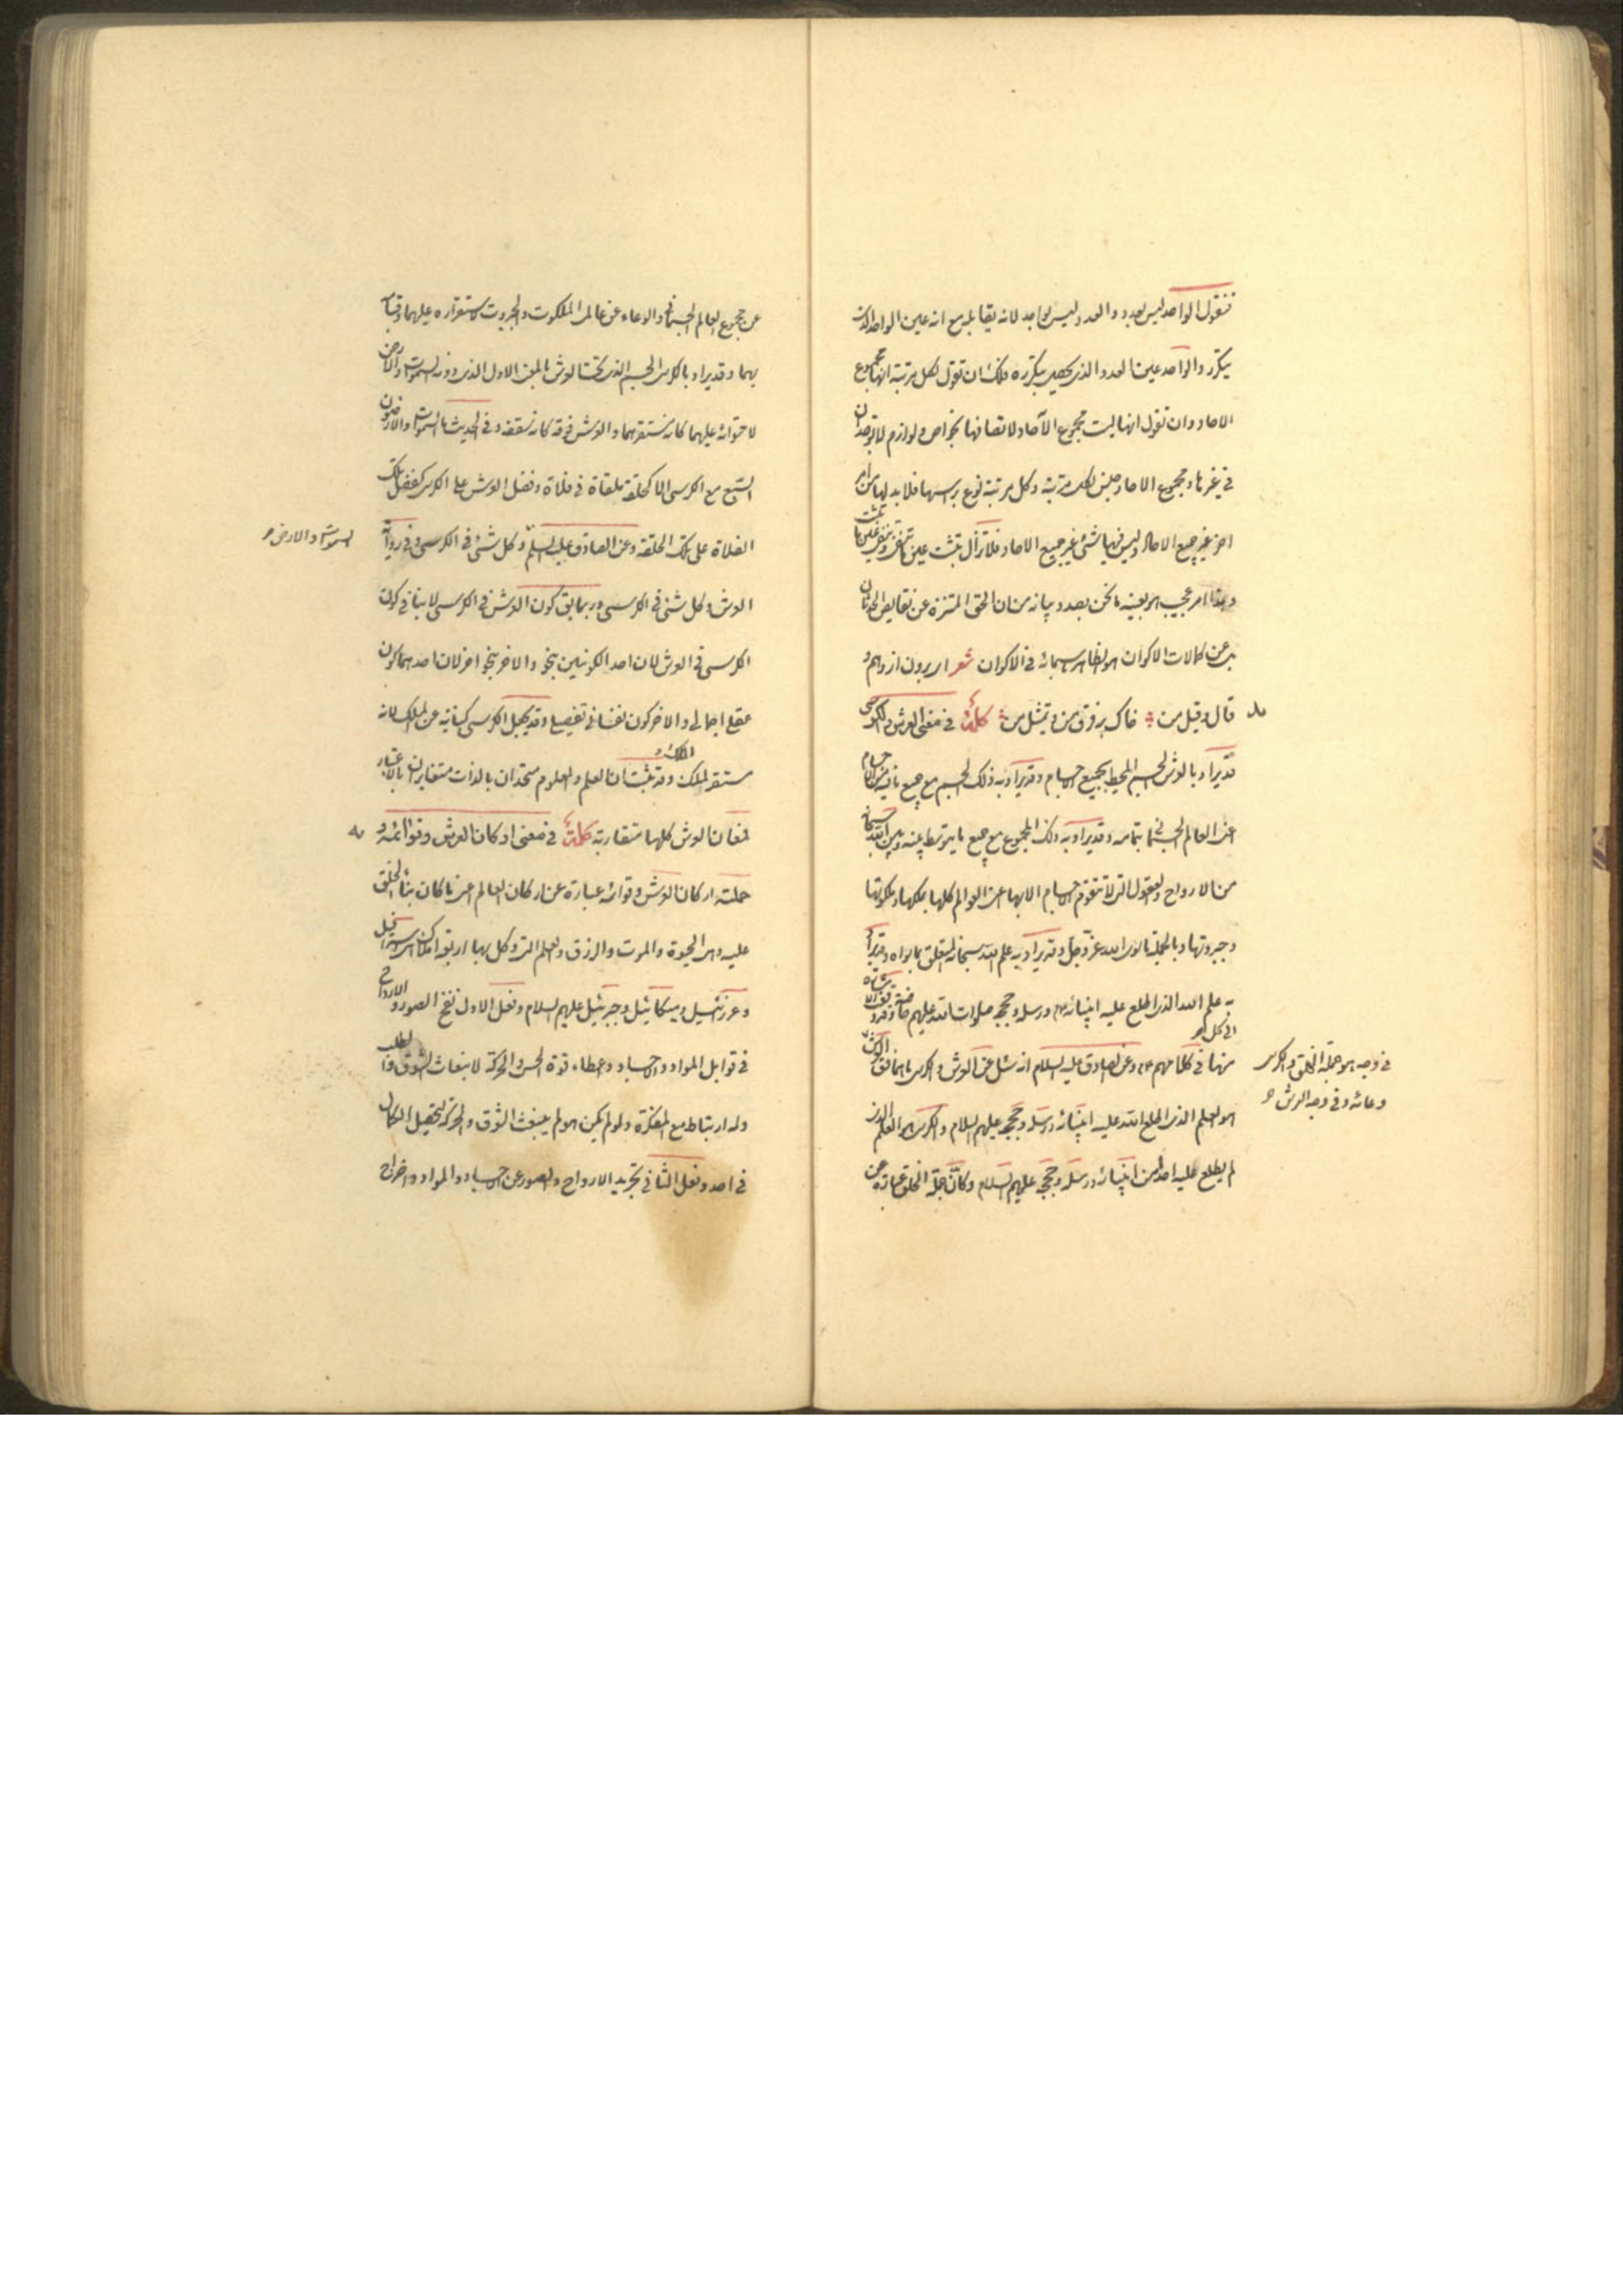 فنقول الواحد ليس بعدد والعدد ليس بواحد لانه يقابله مع انه عين الواحد الذى
يتكرر والواحد عين العدد الذى يحصل بتكرره فلك ان تقول لكل مرتبة انها مجموع
الاحاد وان تقول انها ليست مجموع الآحاد لاتصافها بخواص ولوازم لا توجدان
فى غيرها ومجموع الاحاد جنس لكل مرتبة وكل مرتبة نوع برأسها فلا بد لها من امر
اخر غير جميع الاحاد وليس فيها شئ غير جميع الاحاد فلا تزال تثبت عين ما تنفى وتنفى عين ما تثبت
وهذا امر عجيب هو بعينه ما نحن بصدد بيانه من ان الحق المنزه عن نقايص الحدثان
بل عن كمالات الاكوان هو الظاهر سبحانه فى الاكوان شعر اى برون از وهم و
قال وقيل من خاك بر فرق من و تمثيل من كلمة فى معنى العرش والكرسى
قد يراد بالعرش الجسم المحيط بجميع الاجسام وقد يراد به ذلك الجسم مع جميع ما فيه من الاجسام
اعنى العالم الجسمانى بتمامه وقد يراد به ذلك المجموع مع جميع ما يتوسط بينه وبين الله سبحانه
من الارواح والعقول التى لا تتقوم الاجسام الا بها اعنى العوالم كلها بملكها وملكوتها
وجبروتها وبالجملة ما سوى الله عز وجل وقد يراد به علم الله سبحانه المتعلق بما سواه وقد يراد
به علم الله الذى اطلع عليه انبيائه ورسله وحججه صلوات الله عليهم خاصة وقد وقع الاشارة
الى كل
منها فى كلامهم وعن الصادق عليه السلام انه سئل عن العرش والكرسى ما هما فقال العرش
فى وجه هو جملة الخلق والكرسى
وعائه وفى وجه العرش
هو العلم الذى اطلع الله عليه انبيائه ورسله وحججه عليهم السلام والكرسى هو العلم الذى
لم يطلع عليه احدا من انبيائه ورسله وحججه عليهم السلام وكأن جملة الخلق عبارة عن
عن مجموع العالم الجسمانى والوعاء عن عالمى الملكوت والجبروت لاستقراره عليهما وقيامه
بهما وقد يراد بالكرسى الجسم الذى تحت العرش بالمعنى الاول الذى دونه السموات والارض
لاحتوائه عليهما كانه مستقرهما والعرش فوقه كانه سقفه وفى الحديث ما السموات والارضون
السبع مع الكرسى الا كحلقة ملقاة فى فلاة وفضل العرش على الكرسى كفضل تلك
الفلاة على تلك الحلقة وعن الصادق عليه السلم وكل شئ فى الكرسى وفى رواية
السموات والارض و
العرش وكل شئ فى الكرسى وربما يق كون العرش فى الكرسى لا ينافى كون
الكرسى فى العرش لان احد الكونين بنحو والاخر بنحو اخر لان احدهما كون
عقلى اجمالى والاخر كون نفسانى تفصيلى وقد يجعل الكرسى كناية عن الملك لانه
مستقر الملك وقد ثبت ان العلم والمعلوم متحدان بالذات متغايران بالاعتبار
فمعانى العرش كلها متقاربة كلمة فى معنى اركان العرش وقوائمه و
حملته اركان العرش وقوائه عبارة عن اركان العالم اعنى ما كان بناء الخلق
عليه وهى الحيوة والموت والرزق والعلم التى وكل بها اربعة املاك اسرافيل
وعزرئيل وميكائيل وجبرئيل عليهم السلام وفعل الاول نفخ الصور و الارواح
فى قوابل المواد والاجساد واعطاء قوة الحس والحركة لانبعاث الشوق والطلب
وله ارتباط مع المفكرة ولو لم يكن هو لم ينبعث الشوق والحركة لتحصيل الكمال
فى احد وفعل الثانى تجريد الارواح والصور عن الاجساد والمواد واخراج